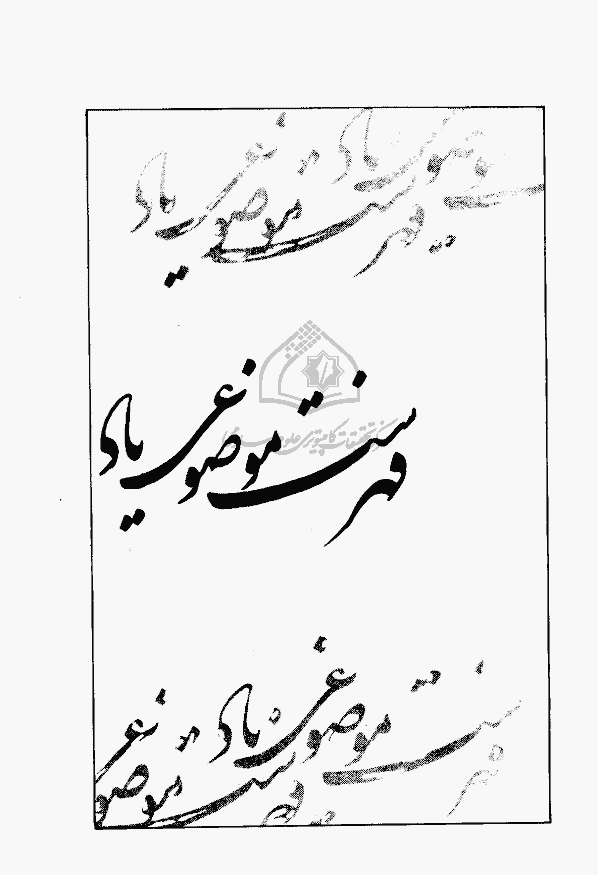 فهرست موضوعی یاد
فهرست موضوعی یاد
مرکز تحقیقات کامپیوتری علوم اسلامی
فهرست موضوعی یاد